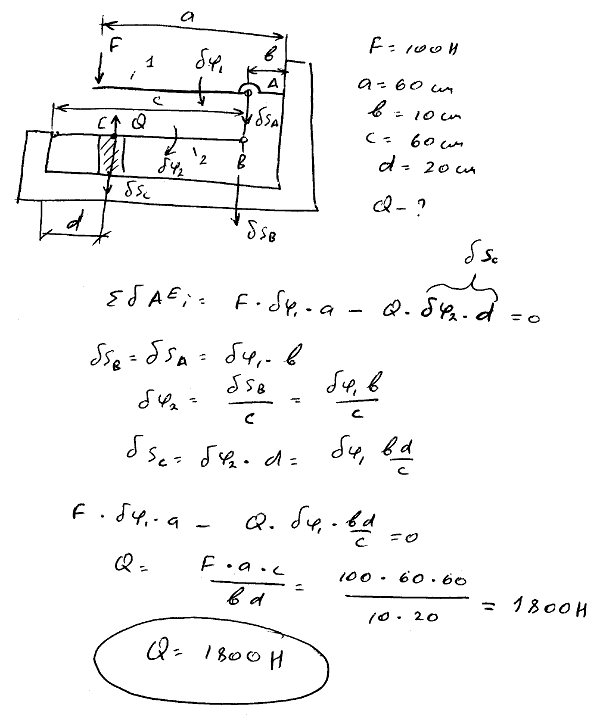 a
F
1
δφ₁
в
A
c
C
Q
δS_A
δφ₂
2
B
δS_C
d
δS_B
F = 100 Н
a = 60 см
в = 10 см
c = 60 см
d = 20 см
Q – ?
δS_C
Σ δA^E_i = F · δφ₁ · a – Q · δφ₂ · d = 0
δS_B = δS_A = δφ₁ · в
δφ₂ = δS_B / c = δφ₁ в / c
δS_C = δφ₂ · d = δφ₁ вd / c
F · δφ₁ · a – Q · δφ₁ · вd / c = 0
Q = F · a · c / в d = 100 · 60 · 60 / 10 · 20 = 1800 Н
Q = 1800 Н